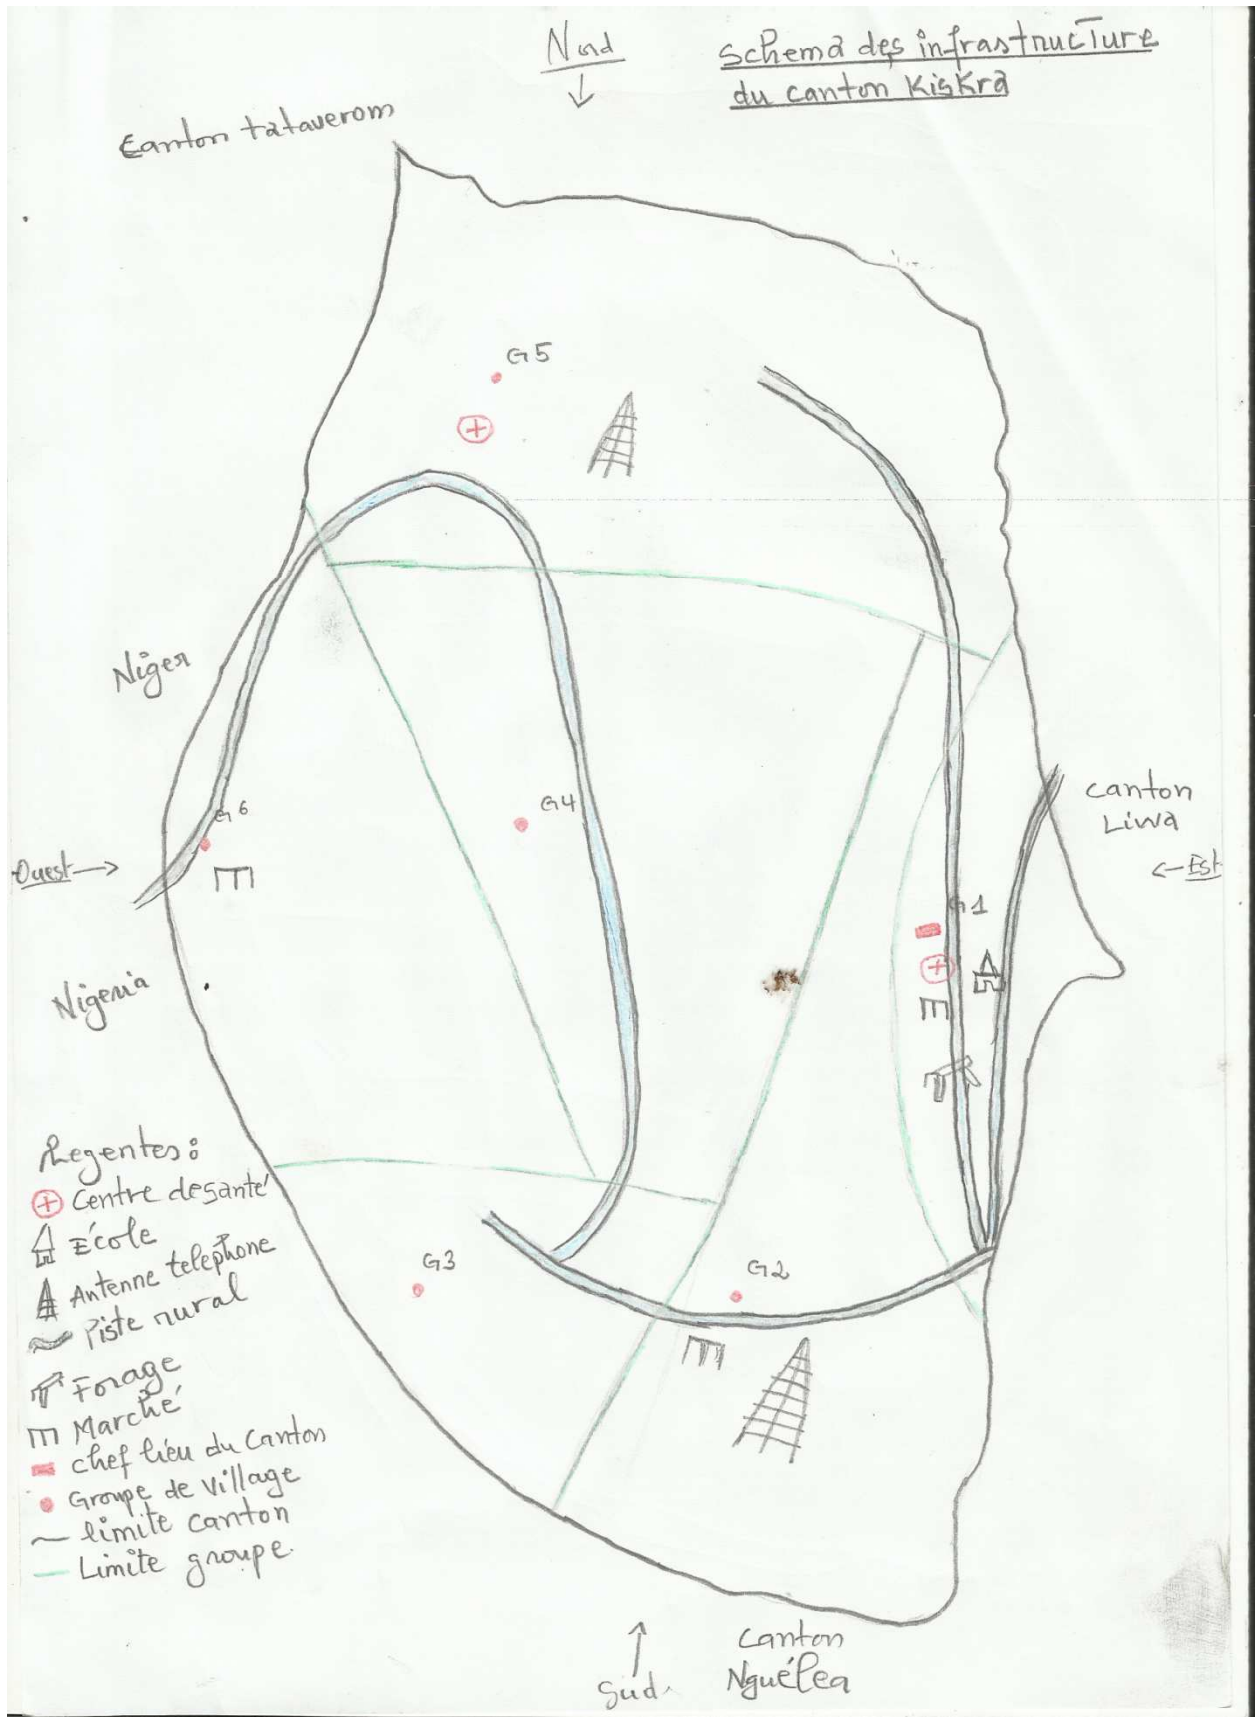 Nord
schema des infrastructure
du canton Kiskra
Canton tataverom
G5
Niger
G4
G6
canton
Liwa
Ouest
Est
G1
Nigeria
Legentes:
Centre de santé
École
Antenne telephone
Piste rural
Forage
Marché
chef lieu du Canton
Groupe de village
limite canton
Limite groupe.
G3
G2
Sud
Canton
Nguélea